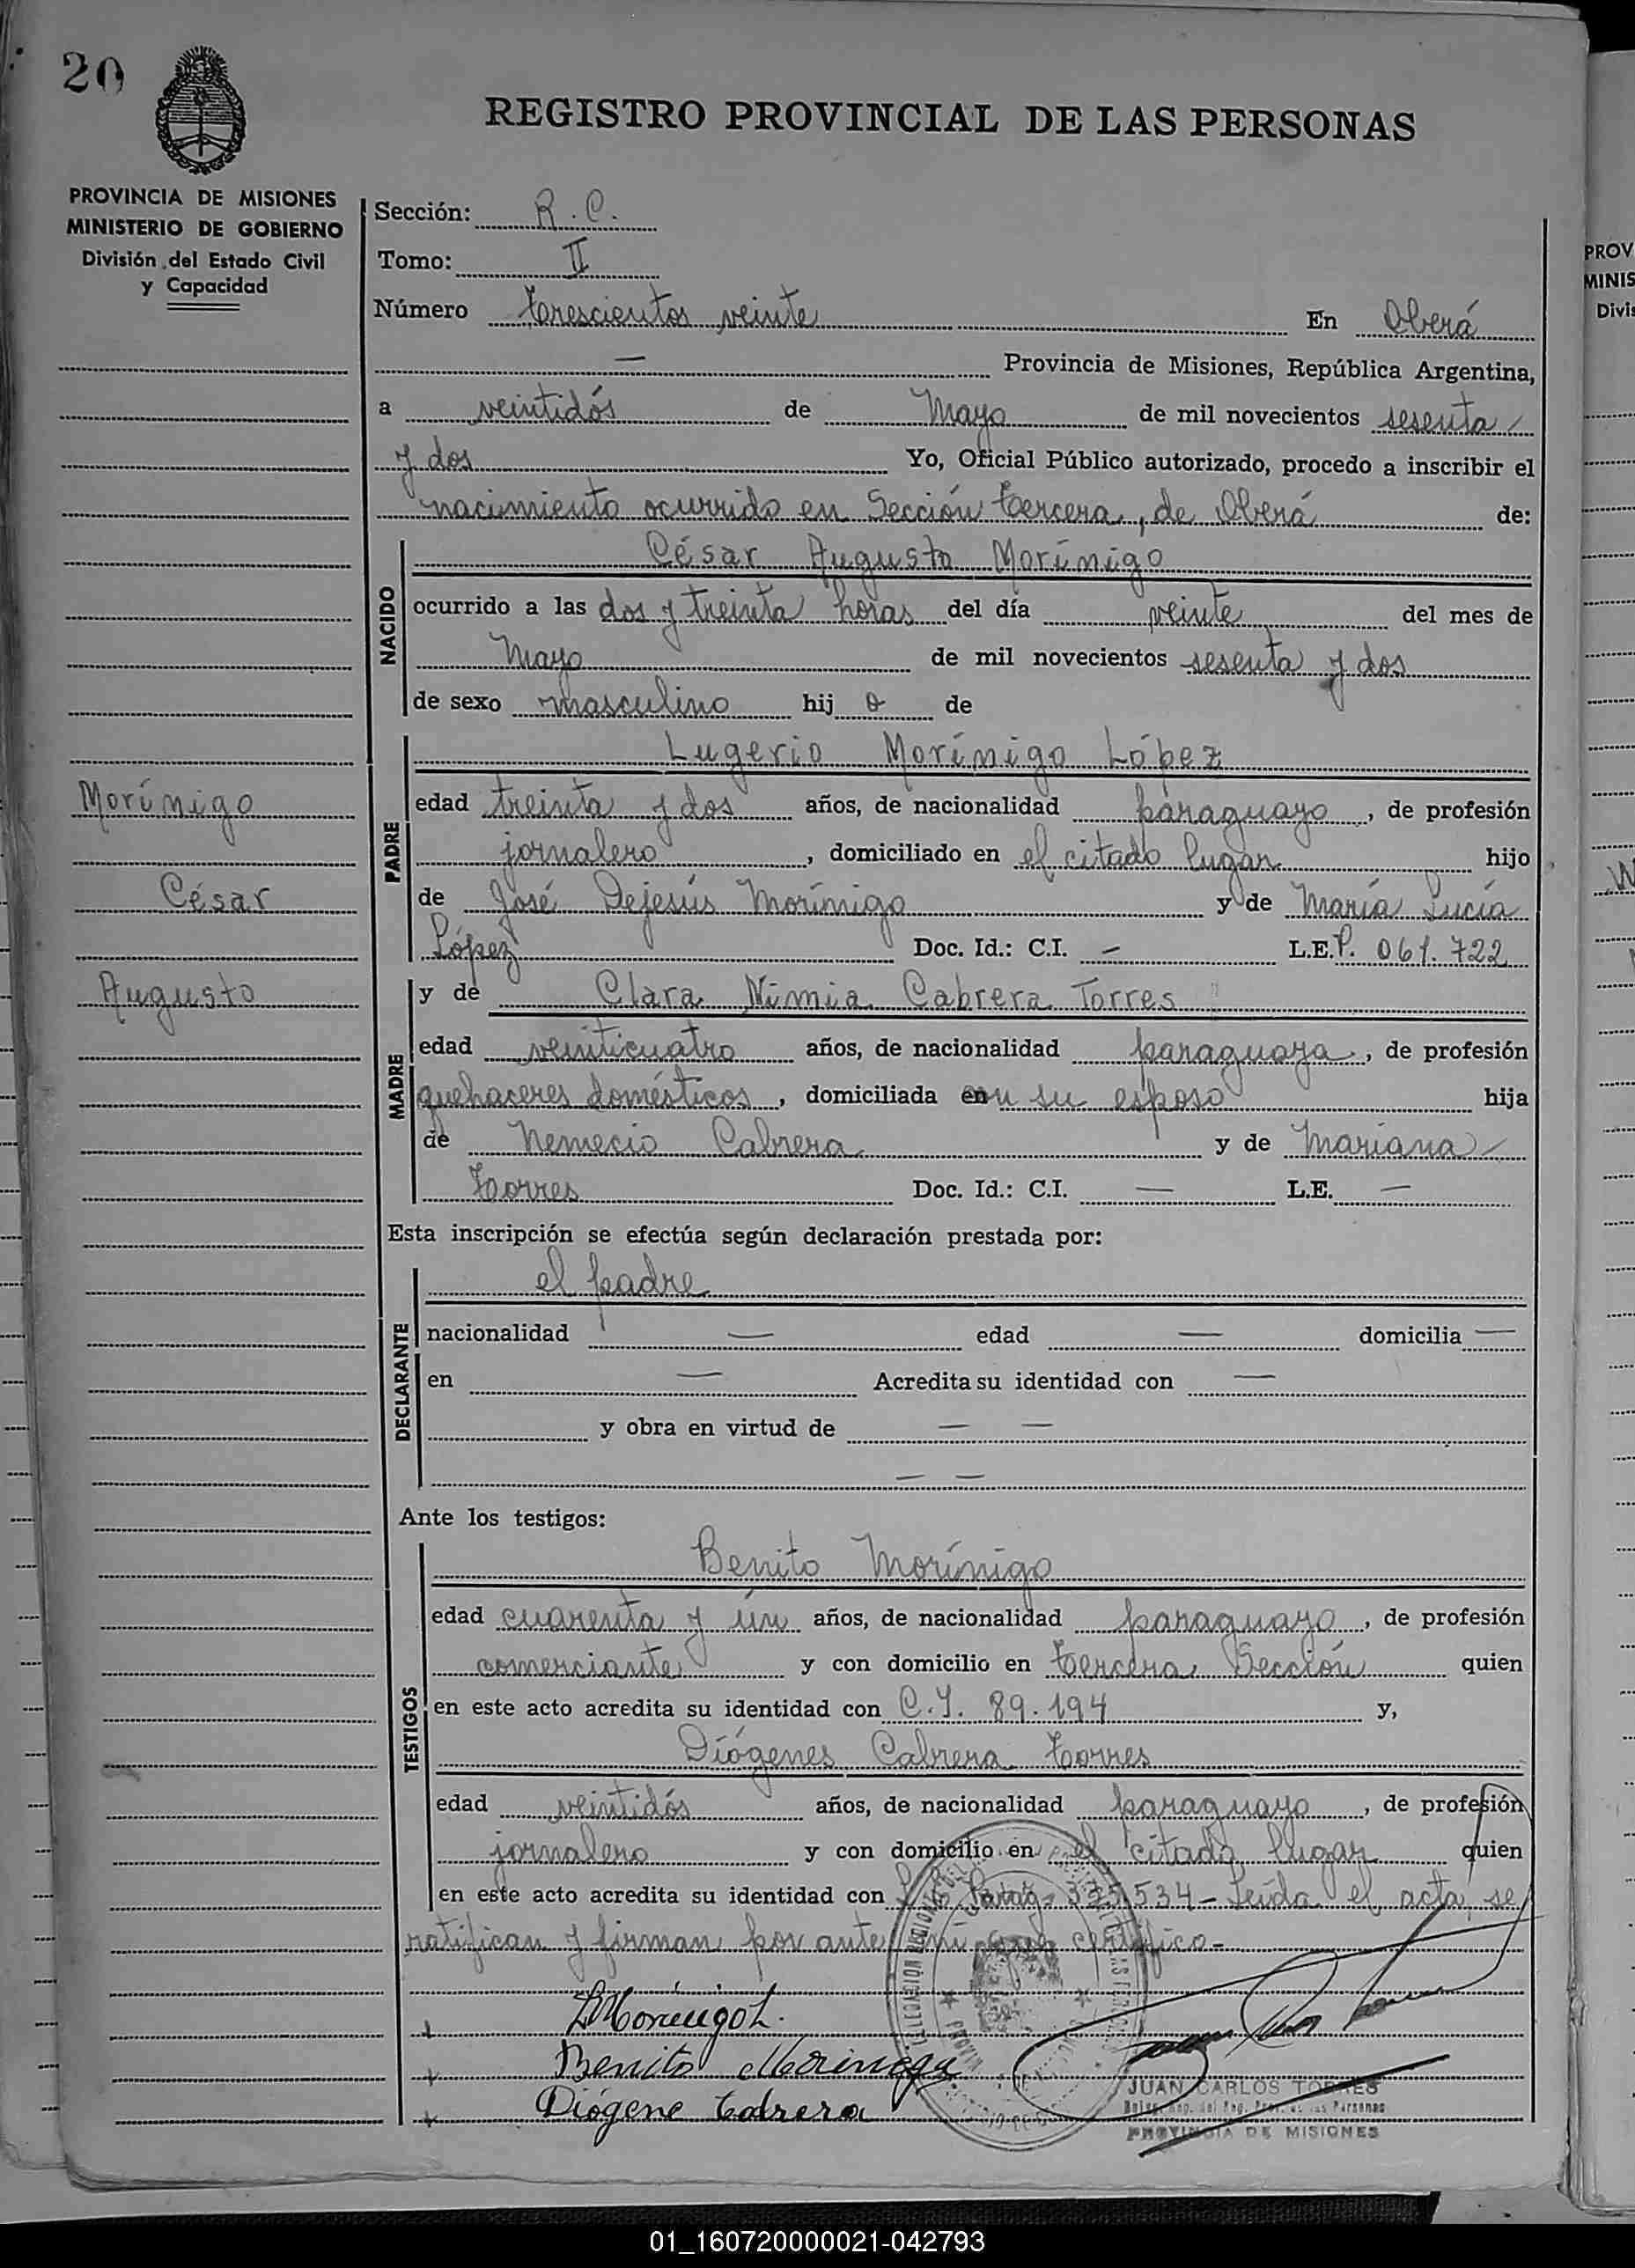 20
REGISTRO PROVINCIAL DE LAS PERSONAS
PROVINCIA DE MISIONES
MINISTERIO DE GOBIERNO
División del Estado Civil
y Capacidad
Sección: R. C.
Tomo: II
Número trescientos veinte En Oberá
— Provincia de Misiones, República Argentina,
a veintidós de Mayo de mil novecientos sesenta
y dos Yo, Oficial Público autorizado, procedo a inscribir el
nacimiento ocurrido en Sección tercera, de Oberá de:
NACIDO
César Augusto Morínigo
ocurrido a las dos y treinta horas del día veinte del mes de
Mayo de mil novecientos sesenta y dos
de sexo masculino hij o de
PADRE
Lugerio Morínigo López
edad treinta y dos años, de nacionalidad paraguayo, de profesión
jornalero, domiciliado en el citado lugar hijo
de José Dejesús Morínigo y de María Lucía
López Doc. Id.: C.I. — L.E. P. 061.722
Morínigo
César
Augusto
MADRE
y de Clara Nimia Cabrera Torres
edad veinticuatro años, de nacionalidad paraguaya, de profesión
quehaceres domésticos, domiciliada en su esposo hija
de Nemecio Cabrera y de Mariana
Torres Doc. Id.: C.I. — L.E. —
Esta inscripción se efectúa según declaración prestada por:
DECLARANTE
el padre
nacionalidad — edad — domicilia —
en — Acredita su identidad con —
y obra en virtud de — —
— —
Ante los testigos:
TESTIGOS
Benito Morínigo
edad cuarenta y un años, de nacionalidad paraguayo, de profesión
comerciante y con domicilio en tercera Sección quien
en este acto acredita su identidad con C.I. 89.194 y,
Diógenes Cabrera Torres
edad veintidós años, de nacionalidad paraguayo, de profesión
jornalero y con domicilio en el citado lugar quien
en este acto acredita su identidad con 534- Leída el acta, se
ratifican y firman por ante mi que certifico-
L Morínigo L.
Benito Morinigo
Diógene Cabrera
JUAN CARLOS TORRES
PROVINCIA DE MISIONES
PROV
MINIS
Divis
01_160720000021-042793